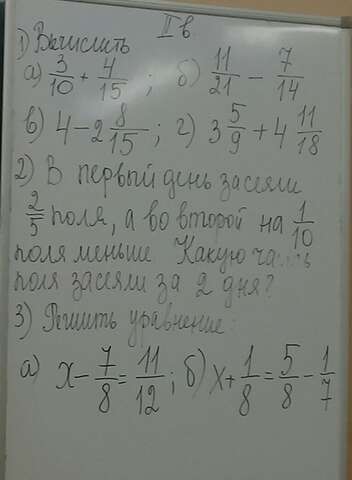 II в.
1) Вычислить
а) 3/10 + 4/15 ; б) 11/21 - 7/14
в) 4 - 2 8/15 ; г) 3 5/9 + 4 11/18
2) В первый день засеяли
2/5 поля, а во второй на 1/10
поля меньше Какую часть
поля засеяли за 2 дня?
3) Решить уравнение:
а) x - 7/8 = 11/12 ; б) x + 1/8 = 5/8 - 1/7